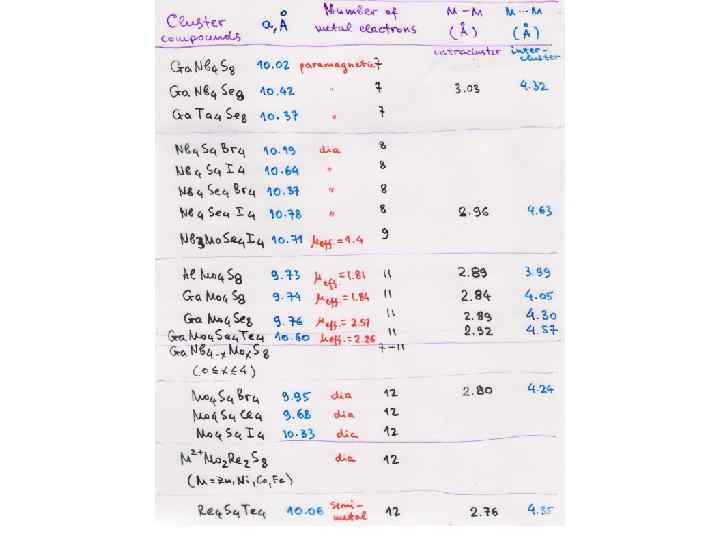 Cluster compounds a, Å Number of metal electrons M-M (Å) intracluster M...M (Å) inter-cluster
GaNb4S8 10.02 paramagnetic 7
GaNb4Se8 10.42 " 7 3.03 4.32
GaTa4Se8 10.37 " 7
Nb4S4Br4 10.19 dia 8
Nb4S4I4 10.64 " 8
Nb4Se4Br4 10.37 " 8
Nb4Se4I4 10.78 " 8 2.96 4.63
Nb3MoSe4I4 10.71 μeff.=1.4 9
AlMo4S8 9.73 μeff.=1.81 11 2.89 3.99
GaMo4S8 9.74 μeff.=1.84 11 2.84 4.05
GaMo4Se8 9.76 μeff.=2.57 11 2.89 4.30
GaMo4Se4Te4 10.60 μeff.=2.26 11 2.92 4.57
GaNb4-xMoxS8 7-11
(0≤x≤4)
Mo4S4Br4 9.95 dia 12 2.80 4.24
Mo4S4Cl4 9.68 dia 12
Mo4S4I4 10.33 dia 12
M2+Mo2Re2S8 dia 12
(M=Zn, Ni, Co, Fe)
Re4S4Te4 10.06 semi-metal 12 2.76 4.35